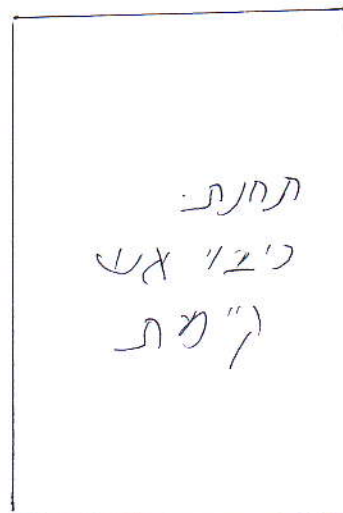 תחנת
כיבוי אש
קיימת